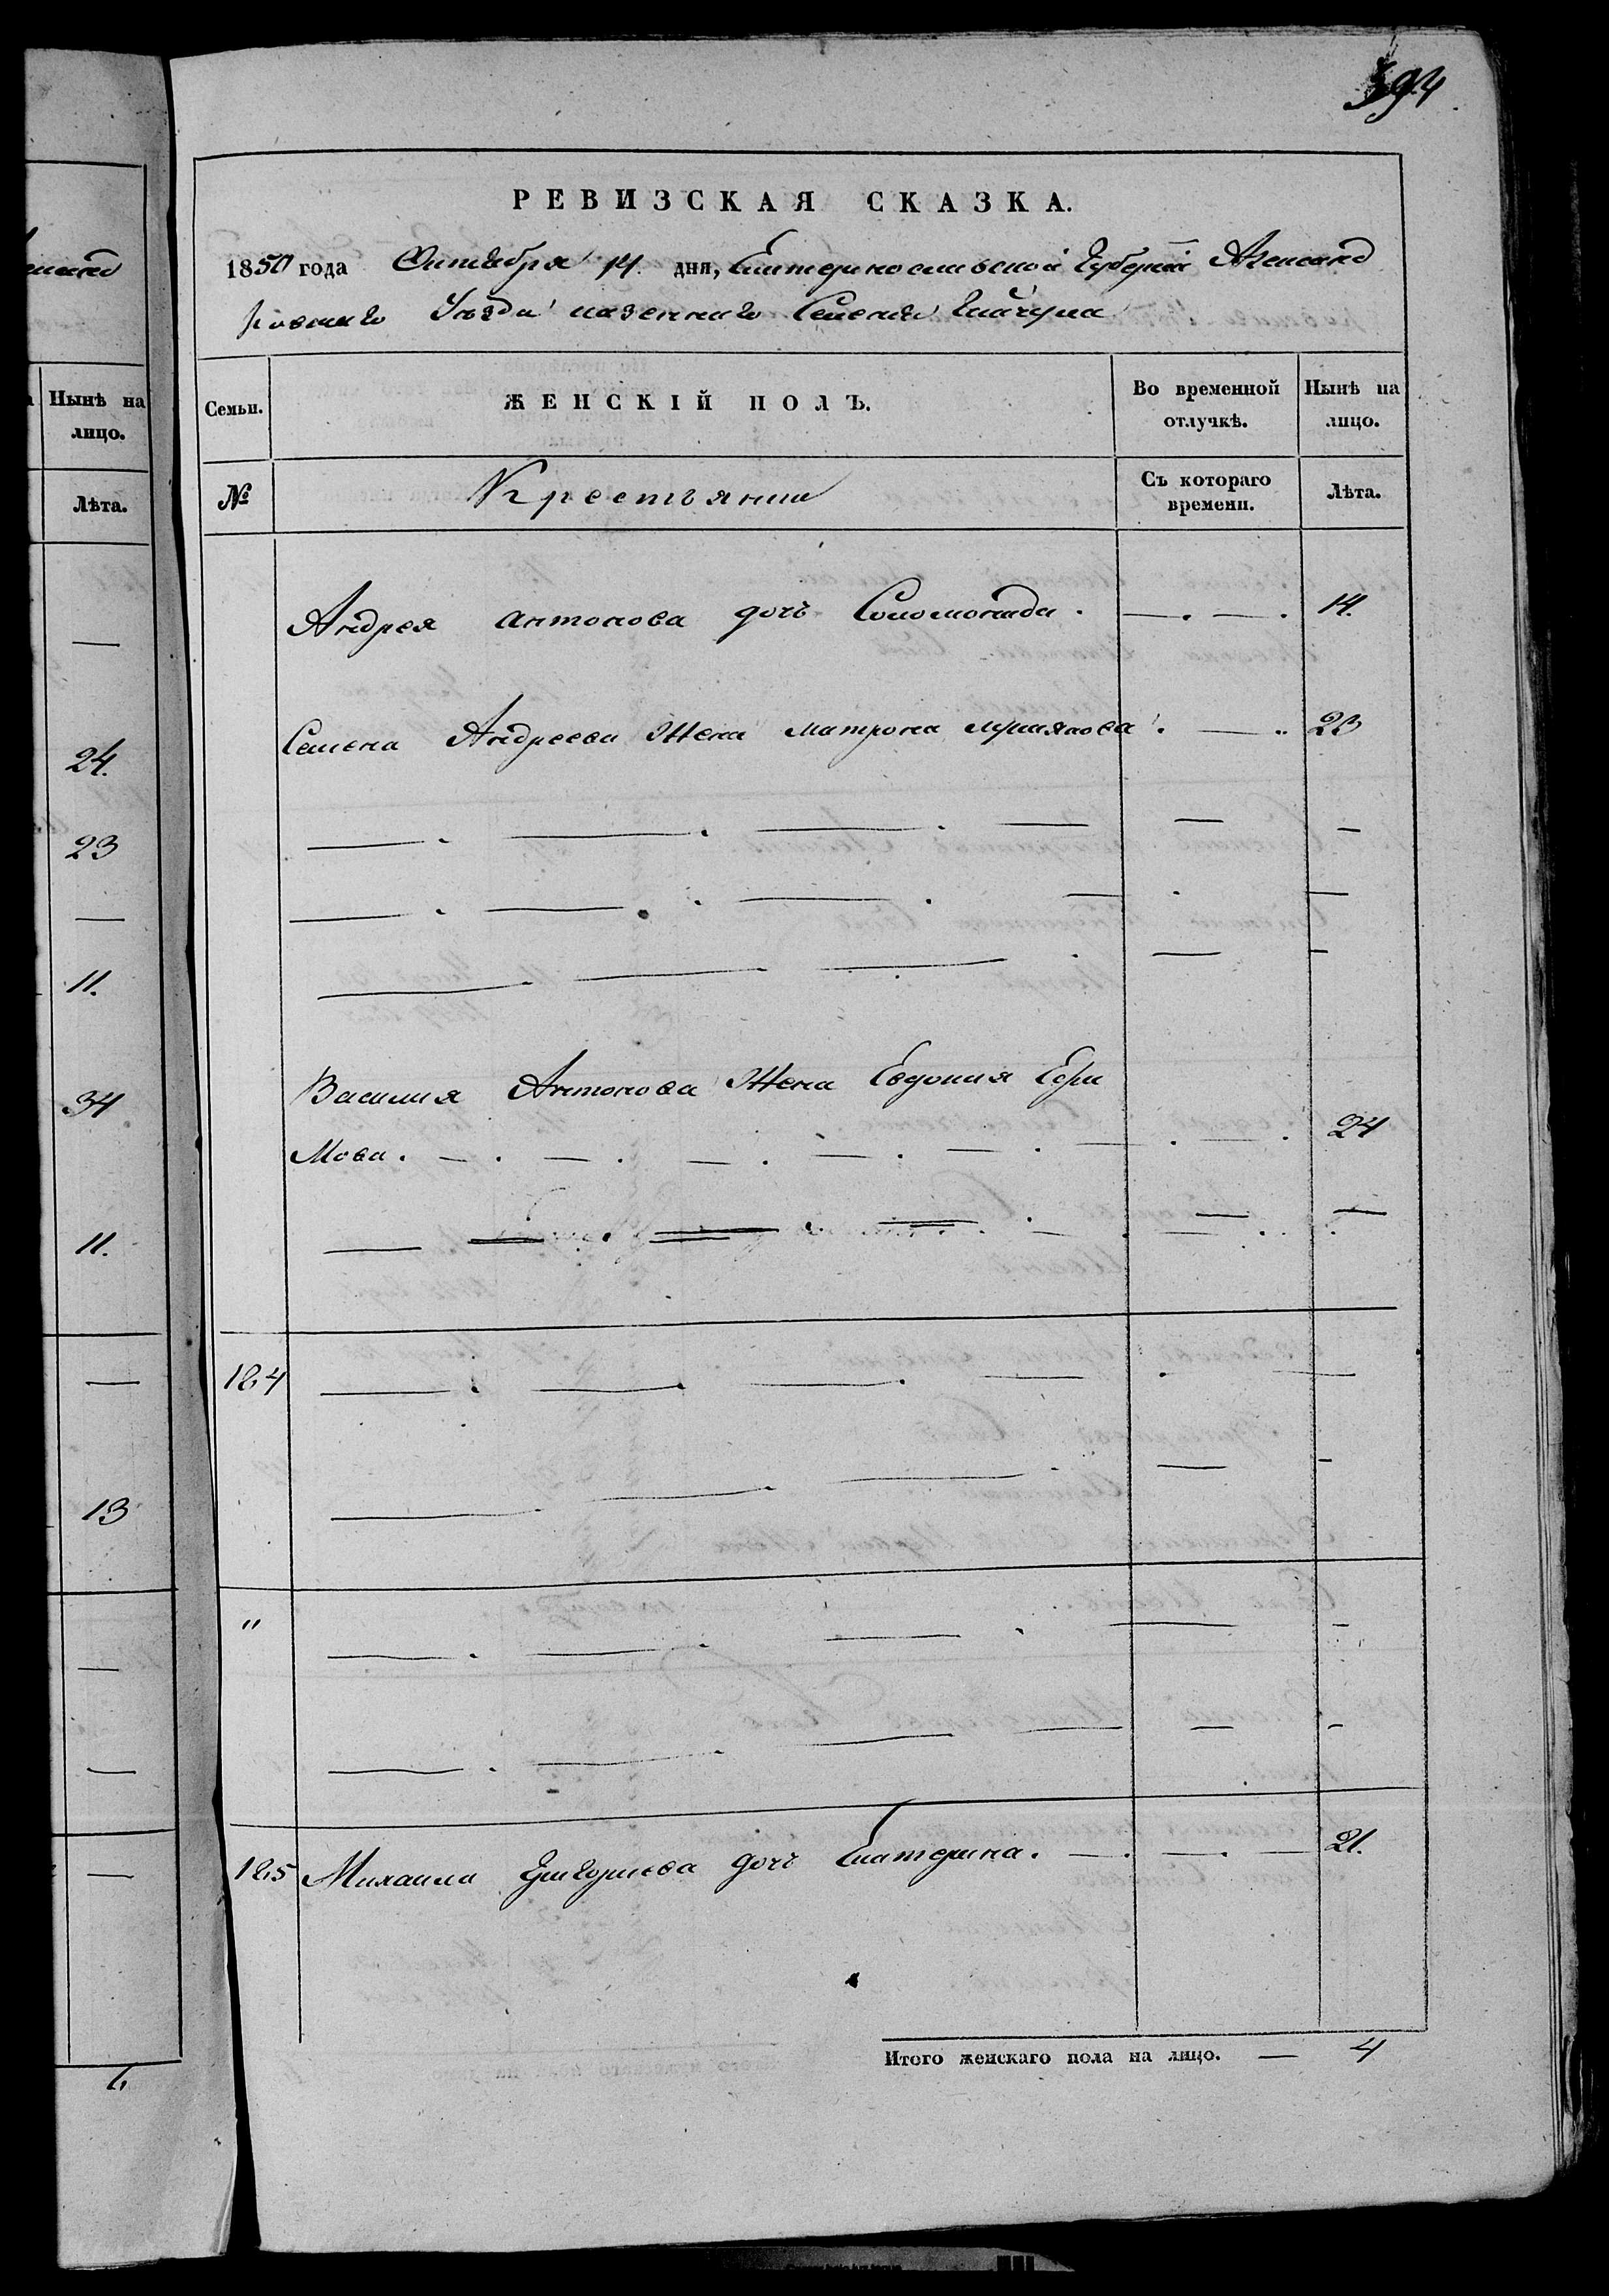 394
РЕВИЗСКАЯ СКАЗКА.
1850 года Октября 14. дня, Екатеринославской Губерніи Александ
ровскаго Уезда казеннаго Селенія Гайчула
Семьи.
ЖЕНСКІЙ ПОЛЪ.
Во временной отлучкѣ.
Нынѣ на лицо.
№
Крестьяне
Съ котораго времени.
Лѣта.
Андрея Антонова дочь Соломонида. 14.
Семена Андреева Жена Матрона 23
Василия Антонова Жена Евдокия Ефи
мова. 24
184
"
185 Михаила Григориева дочь Екатерина. 21.
Итого женскаго пола на лицо. — 4
Нынѣ на лицо.
Лѣта.
—
24.
23
—
11.
34
11.
—
13
—
—
—